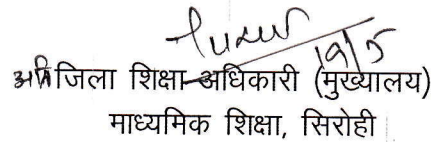 19/5
अति जिला शिक्षा अधिकारी (मुख्यालय)
माध्यमिक शिक्षा, सिरोही